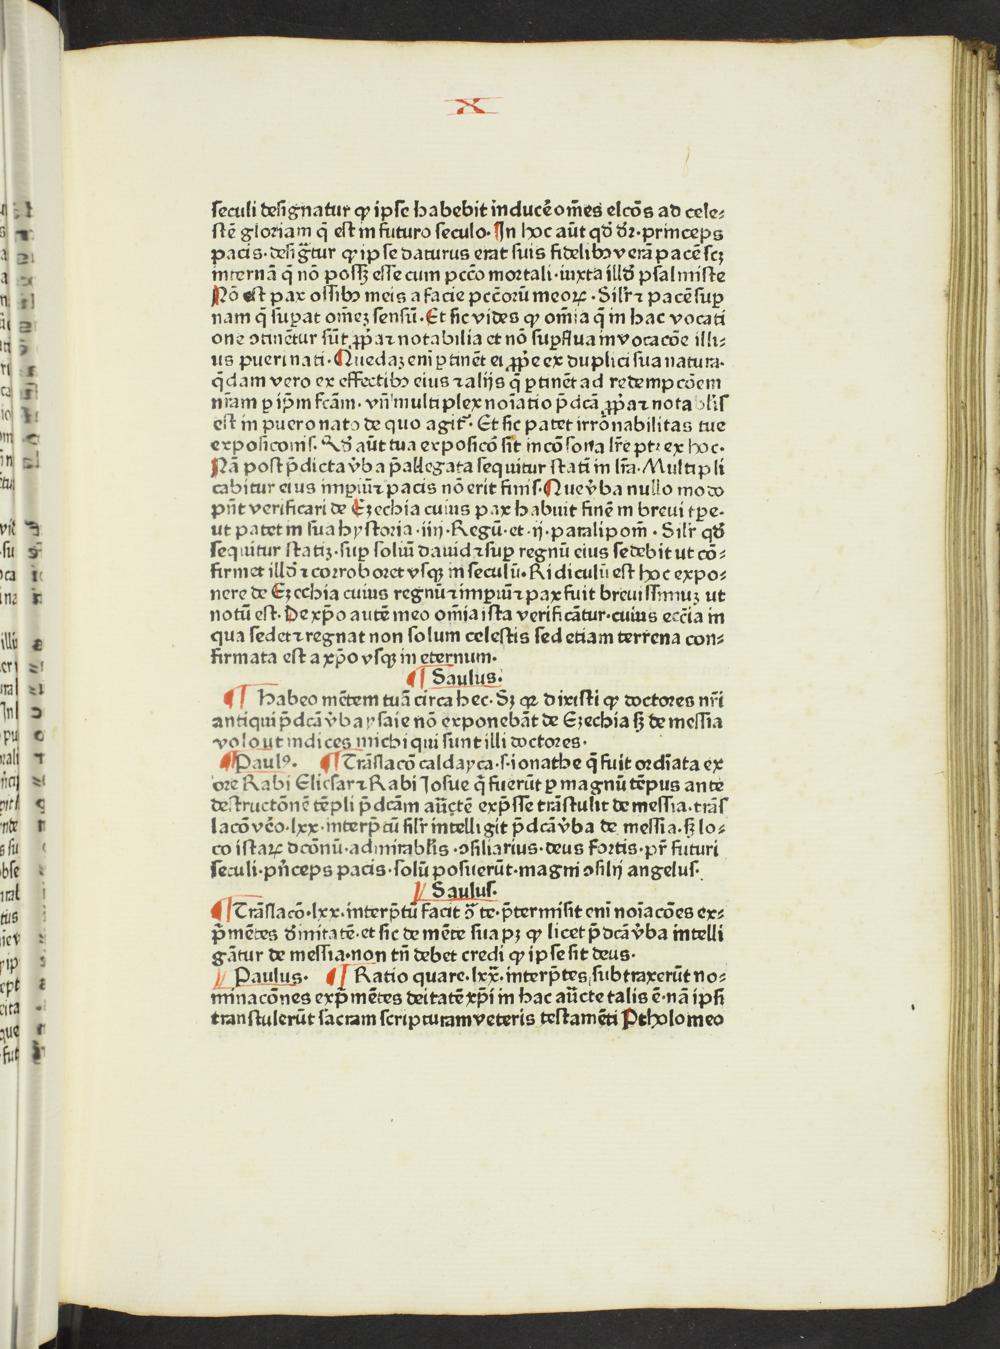 X
seculi designatur ꝙ ipse habebit inducē om̄es elcōs ad cele⸗
stē gloriam q̄ est in futuro seculo· In hoc aūt qđ dr̄· princeps
pacis· desiḡtur ꝙ ipse daturus erat suis fidelibꝫ verā pacē scꝫ
internā q̄ nō possꝫ esse cum pccō mortali· iuxta illđ psalmiste
Nō est pax ossibꝫ meis a facie pccōrū meoꝝ· Silr̄ ⁊ pacē suꝑ
nam q̄ suꝑat om̄eꝫ sensū· Et sic vides ꝙ om̄ia q̄ in hac vocati
one ↄtinētur sūt ꝓp̄a ⁊ notabilia et nō suꝑflua in vocacōe illi⸗
us pueri nati· Quedaꝫ eni̅ ꝑtinēt ei ꝓp̄e ex duplici sua natura·
q̄dam vero ex effectibꝫ eius ⁊ alijs q̄ ꝑtinēt ad redempcōem
nr̄am ꝑ ip̄m fcām· vn̄ multiplex noīatio p̄dcā ꝓp̄a ⁊ notabl̄is
est in puero nato de quo agit᷑· Et sic patet irrōnabilitas tue
exposicōnis· Qđ aūt tua exposicō sit incōsona lr̄e pt᷑ ex hoc·
Nā post p̄dicta v̄ba p̄allegata sequitur statī in lr̄a· Multipli
cabitur eius imꝑiū ⁊ pacis nō erit finis· Que v̄ba nullo modo
pn̄t verificari de Eꝫechia cuius pax habuit finē in breui tꝑe·
ut patet in sua hystoria ·iiij· Regū· et ·ij· paralipom̄· Silr̄ qđ
sequitur statiꝫ· suꝑ soliū dauid ⁊ suꝑ regnū eius sedebit ut cō⸗
firmet illđ ⁊ corroboret vsqꝫ in seculū· Ridiculū est hoc expo⸗
nere de Eꝫechia cuius regnū ⁊ imꝑiū ⁊ pax fuit breuissimuꝫ ut
notū est· De xp̄o autē meo om̄ia ista verificātur· cuius eccīa in
qua sedet ⁊ regnat non solum celestis sed etiam terrena con⸗
firmata est a xp̄o vsqꝫ in eternum·
¶ Saulus·
¶ Habeo mētem tuā circa hec· Sꝫ qꝛ dixisti ꝙ doctores nr̄i
antiqui p̄dcā v̄ba ysaie nō exponebāt de Eꝫechia sꝫ de messia
volo ut indices michi qui sunt illi doctores·
¶ Paulꝰ· ¶ Trāslacō caldayca ·s· ionathe q̄ fuit ordīata ex
ore Rabi Elicsar ⁊ Rabi Josue q̄ fuerūt ꝑ magnū tēpus ante
destructōnē tēpli p̄dcām auctē exp̄sse trāstulit de messia· trās
lacō v̄o ·lxx· interp̄tū silr̄ intelligit p̄dcā v̄ba de messia· sꝫ lo⸗
co istaꝝ dcōnū· admirabl̄is· ↄsiliarius· deus fortis· pr̄ futuri
seculi· p̄nceps pacis· solū posuerūt· magni ↄsilij angelus·
// Saulus·
¶ Trāslacō ·lxx· interp̄tū facit ↄ̄ te· p̄termisit eni̅ noīacōes ex⸗
p̄mētes diuīnitatē· et sic de mēte sua pꝫ ꝙ licet p̄dcā v̄ba intelli
gātur de messia· non tn̄ debet credi ꝙ ipse sit deus·
// Paulus· ¶ Ratio quare ·lxx· interp̄tes subtraxerūt no⸗
minacōnes exp̄mētes deitatē xp̄i in hac auc̄te talis ē· nā ipsi
transtulerūt sacram scripturam veteris testamēti Ptholomeo